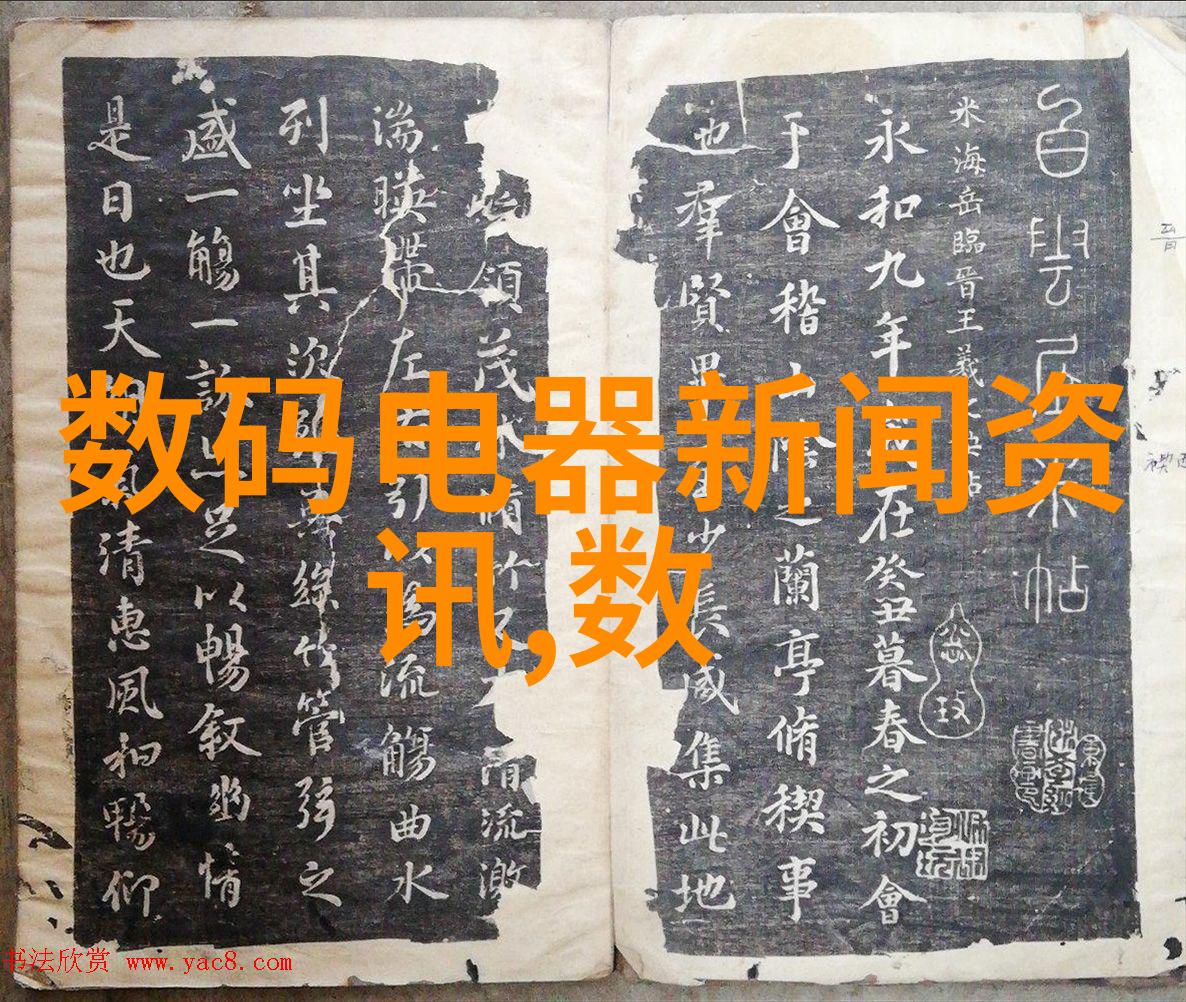 数码电器新闻资
讯,数
白雲居米帖
米海岳臨晉王羲之帖
永和九年歲在癸丑暮春之初會
于會稽山陰之蘭亭脩禊事
也羣賢畢至少長咸集此地
領茂林脩竹又清流激
湍暎帶左右引以為流觴曲水
列坐其次雖無絲竹管弦之
盛一觴一詠亦足以暢敘幽情
是日也天朗氣清惠風和暢仰
书法欣赏 www.yac8.com